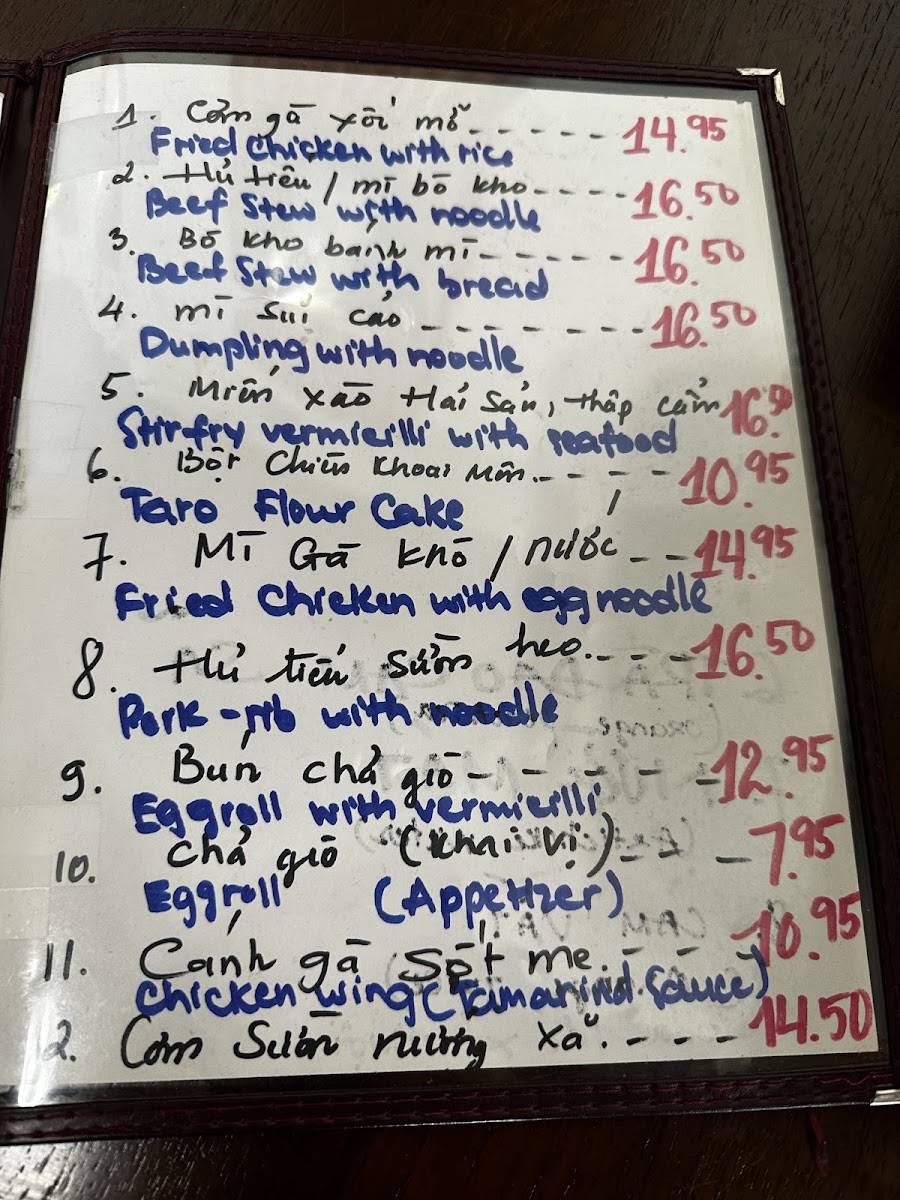 1. Cơm gà xối mỡ - - - - - - 14.95
Fried Chicken with rice
2. Hủ tiếu / mì bò kho - - - - 16.50
Beef Stew with noodle
3. Bò kho bánh mì - - - - - 16.50
Beef Stew with bread
4. mì Sủi cảo - - - - - - - 16.50
Dumpling with noodle
5. Miến xào Hải Sản, thập cẩm 16.50
Stir-fry vermicilli with seafood
6. Bột Chiên Khoai Môn. - - - - 10.95
Taro Flour Cake
7. Mì Gà Khô / nước - - 14.95
Fried Chicken with egg noodle
8. Hủ tiếu sườn heo. - - - 16.50
Pork-rib with noodle
9. Bún chả giò - - - - - - 12.95
Eggroll with vermicilli
10. Chả giò (Khai vị) - - - 7.95
Eggroll (Appetizer)
11. Cánh gà Sốt me. - - - 10.95
Chicken wing (Tamarind Sauce)
2. Cơm Sườn nướng xả. - - - 14.50